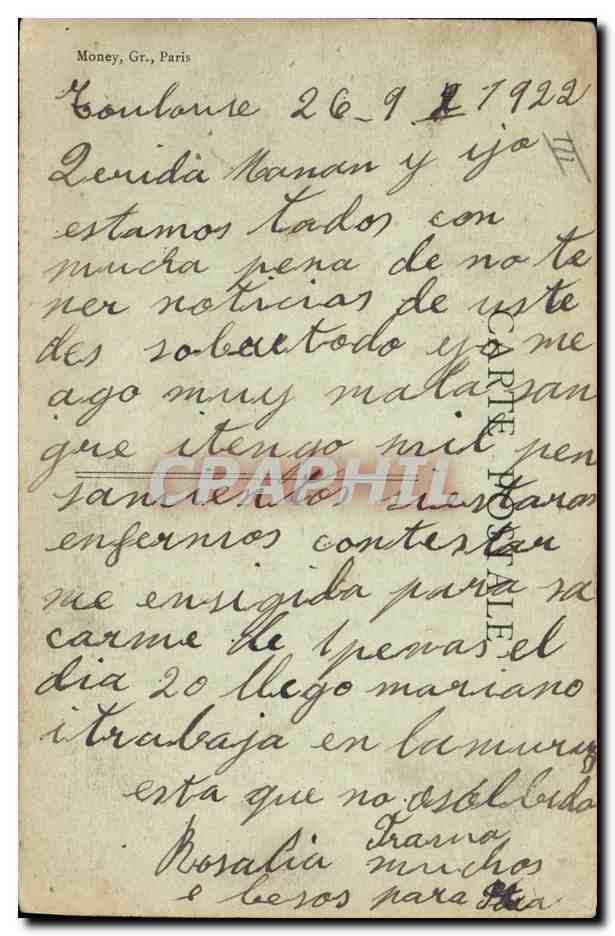 Money, Gr., Paris
Toulouse 26-9 1922
III
Qerida Manan y ijo
estamos tados con
mucha pena de no te
ner noticias de uste
des sobretodo yo me
ago muy mala san
gre itengo mil pen
samientos siestaran
enfermos contestar
me ensigida para sa
carme de penas el
dia 20 llego mariano
itrabaja en
esta que no osolbida
Rosalia
muchos
e besos para
CARTE POSTALE
CPAPHIL